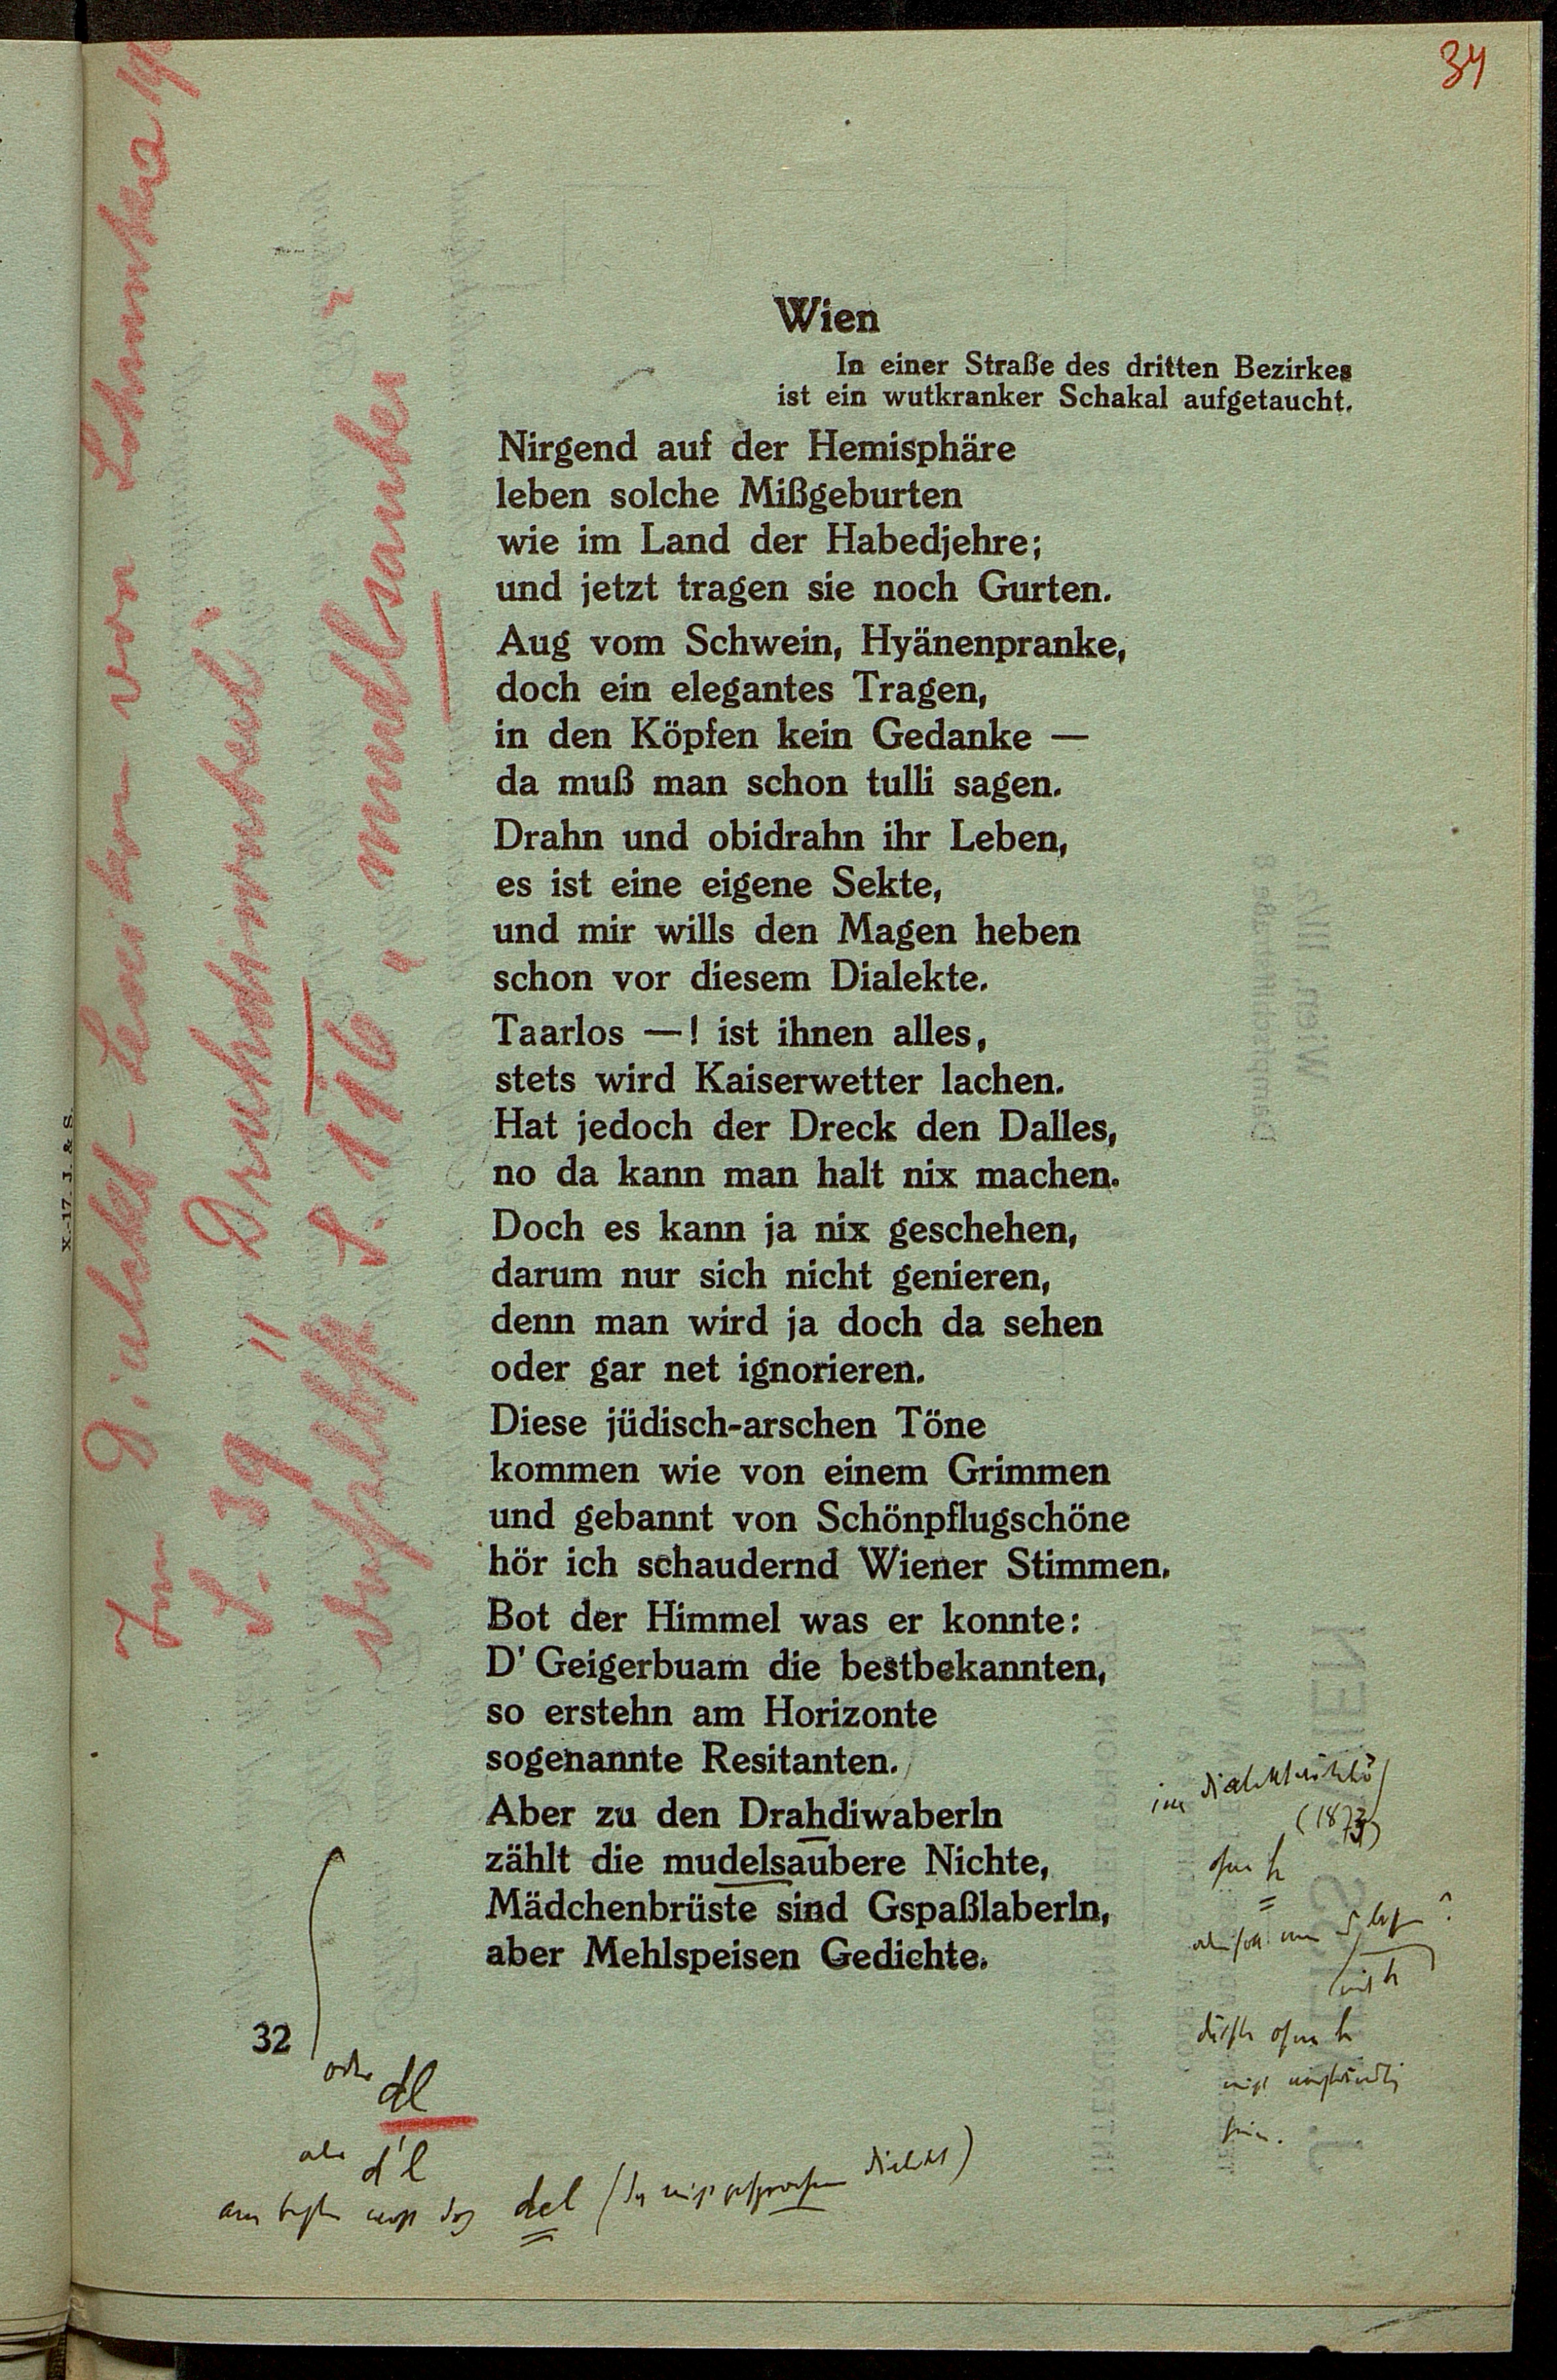 34
Wien
In einer Straße des dritten Bezirkes
ist ein wutkranker Schakal aufgetaucht.
Nirgend auf der Hemisphäre
leben solche Mißgeburten
wie im Land der Habedjehre;
und jetzt tragen sie noch Gurten.
Aug vom Schwein, Hyänenpranke,
doch ein elegantes Tragen,
in den Köpfen kein Gedanke —
da muß man schon tulli sagen.
Drahn und obidrahn ihr Leben,
es ist eine eigene Sekte,
und mir wills den Magen heben
schon vor diesem Dialekte.
Taarlos —! ist ihnen alles,
stets wird Kaiserwetter lachen.
Hat jedoch der Dreck den Dalles,
no da kann man halt nix machen.
Doch es kann ja nix geschehen,
darum nur sich nicht genieren,
denn man wird ja doch da sehen
oder gar net ignorieren.
Diese jüdisch-arschen Töne
kommen wie von einem Grimmen
und gebannt von Schönpflugschöne
hör ich schaudernd Wiener Stimmen.
Bot der Himmel was er konnte:
D' Geigerbuam die bestbekannten,
so erstehn am Horizonte
sogenannte Resitanten.
Aber zu den Drahdiwaberln
zählt die mudelsaubere Nichte,
Mädchenbrüste sind Gspaßlaberln,
aber Mehlspeisen Gedichte.
32
Im Dialekt-Lexikon von
S. 39 "
S. 116 " mudlsauber "
X.-17. J. & S.
im
(1873)
ohne h
mit h
dürfte ohne h
nicht verständlich
sein.
oder dl
oder d'l
am besten wohl doch del (da nicht gesprochener Dialekt)